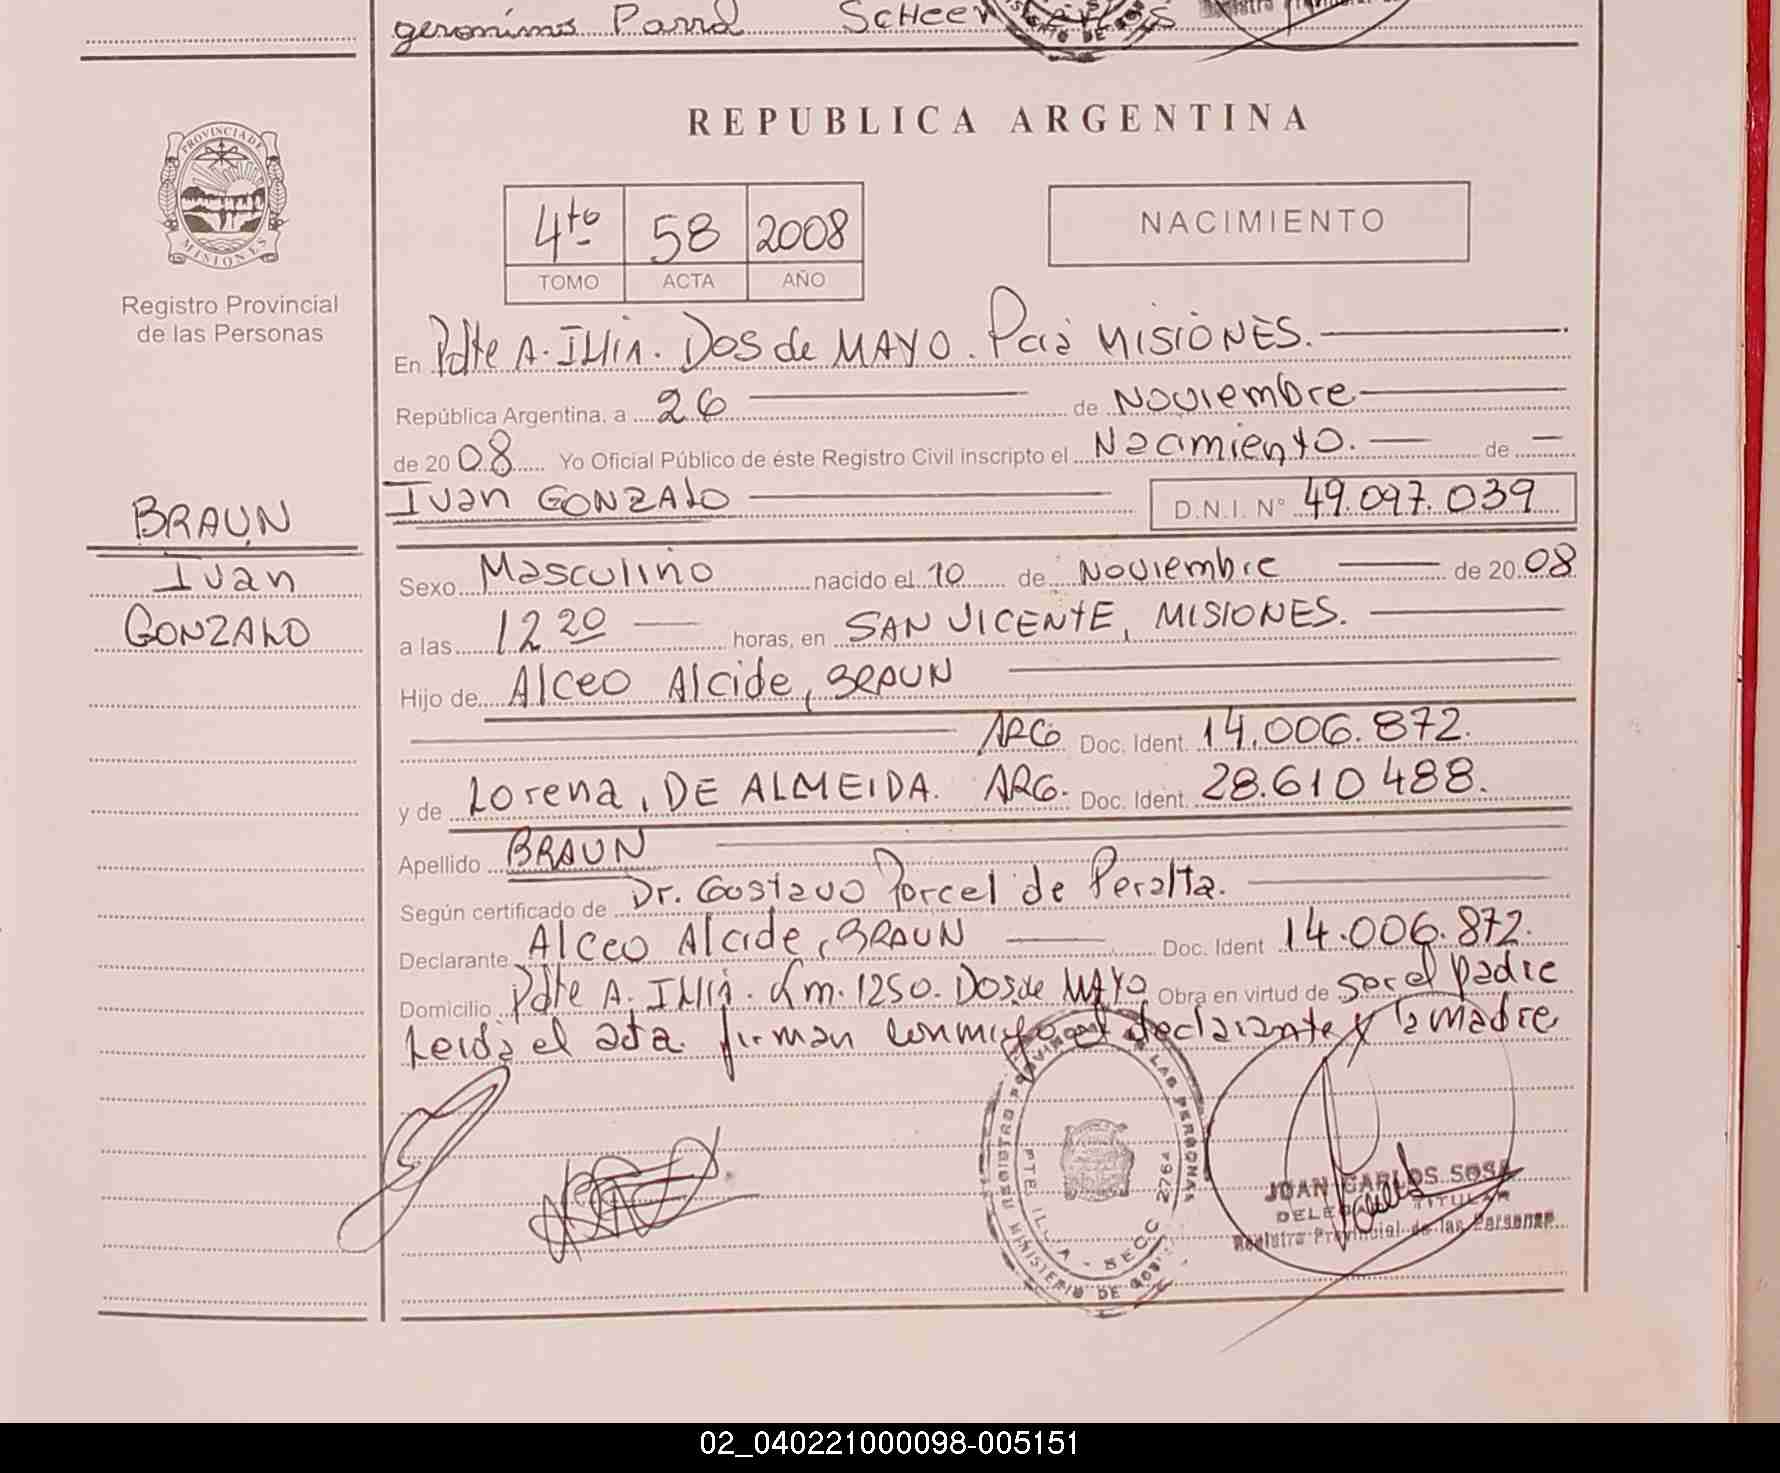 geronimo Parra Scheer
REPUBLICA ARGENTINA
PROVINCIA DE
MISIONES
4to 58 2008
TOMO ACTA AÑO
NACIMIENTO
Registro Provincial
de las Personas
En Pdte A. Illia. Dos de MAYO. Pcia MISIONES.
República Argentina, a 26 de Noviembre
de 2008 Yo Oficial Público de éste Registro Civil inscripto el Nacimiento. de
Ivan GONZALO D.N.I. N° 49.097.039
BRAUN
Ivan
GONZALO
Sexo Masculino nacido el 10 de Noviembre de 2008
a las 12 20 horas, en SAN VICENTE, MISIONES.
Hijo de Alceo Alcide, BRAUN
ARG Doc. Ident. 14.006.872.
y de Lorena, DE ALMEIDA. ARG. Doc. Ident. 28.610 488.
Apellido BRAUN
Según certificado de Dr. Gustavo Porcel de Peralta.
Declarante Alceo Alcide, BRAUN Doc. Ident 14.006.872.
Domicilio Pdte A. Illia. Km. 1250. Dos de MAYO Obra en virtud de ser el padre
Leida el acta. firman conmigo el declarante y la madre
REGISTRO PROVINCIAL DE LAS PERSONAS
PTE. ILLIA - SECC 2764
MINISTERIO DE GOB
JUAN CARLOS SOSA
DELEGADO TITULAR
Registro Provincial de las Personas
02_040221000098-005151